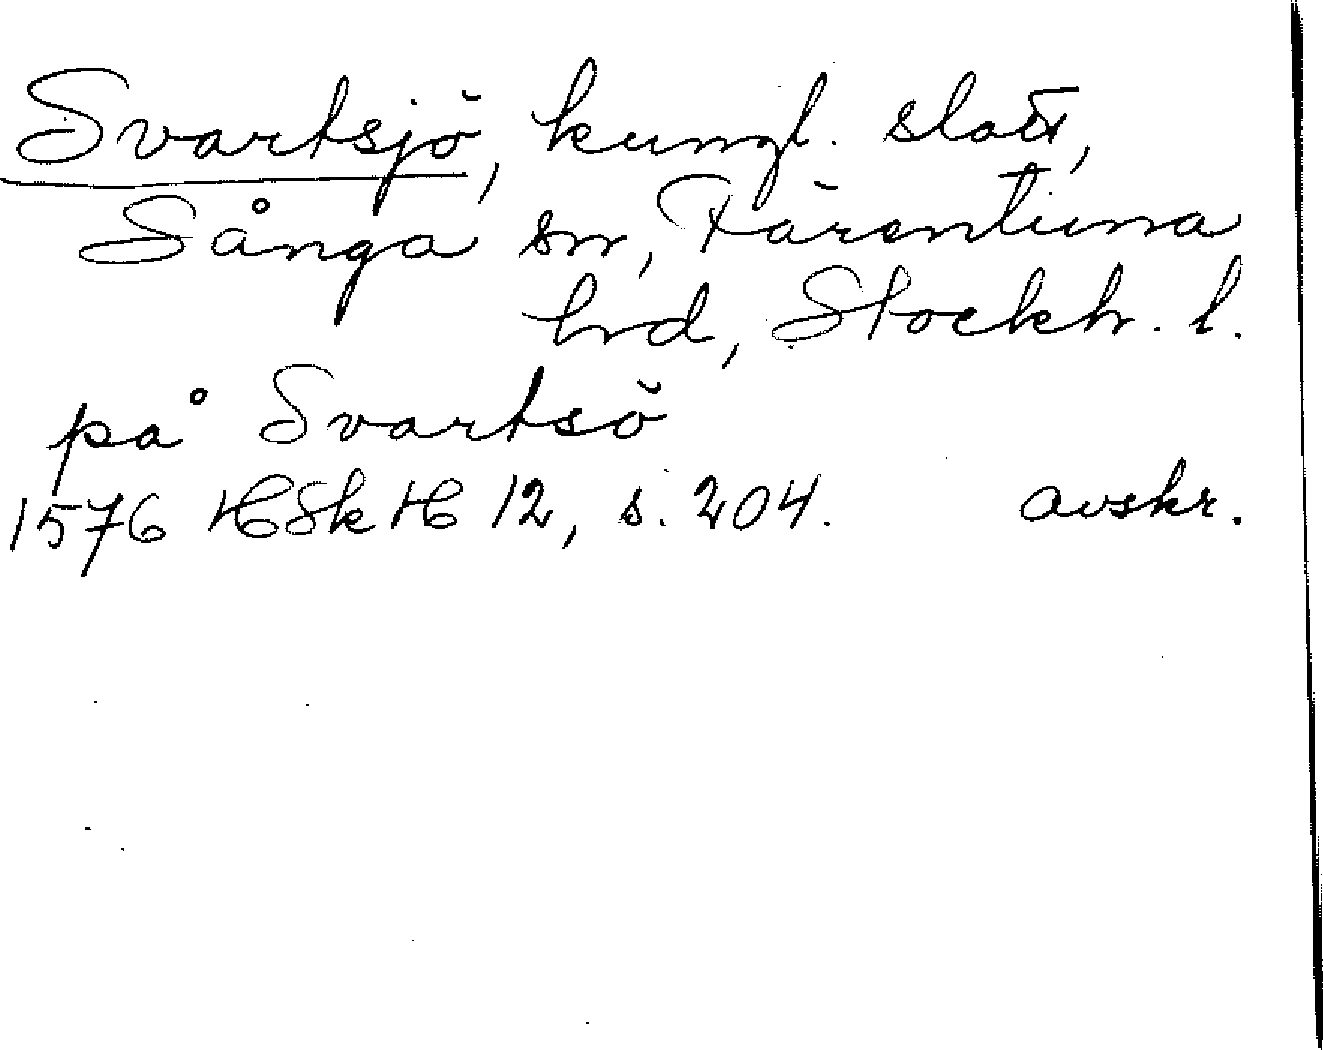 Svartsjö, kungl. slott,
Sånga sn, Färentuna
hrd, Stockh. l.
på Svartsö
1576 HSkH 12, s. 204. avskr.